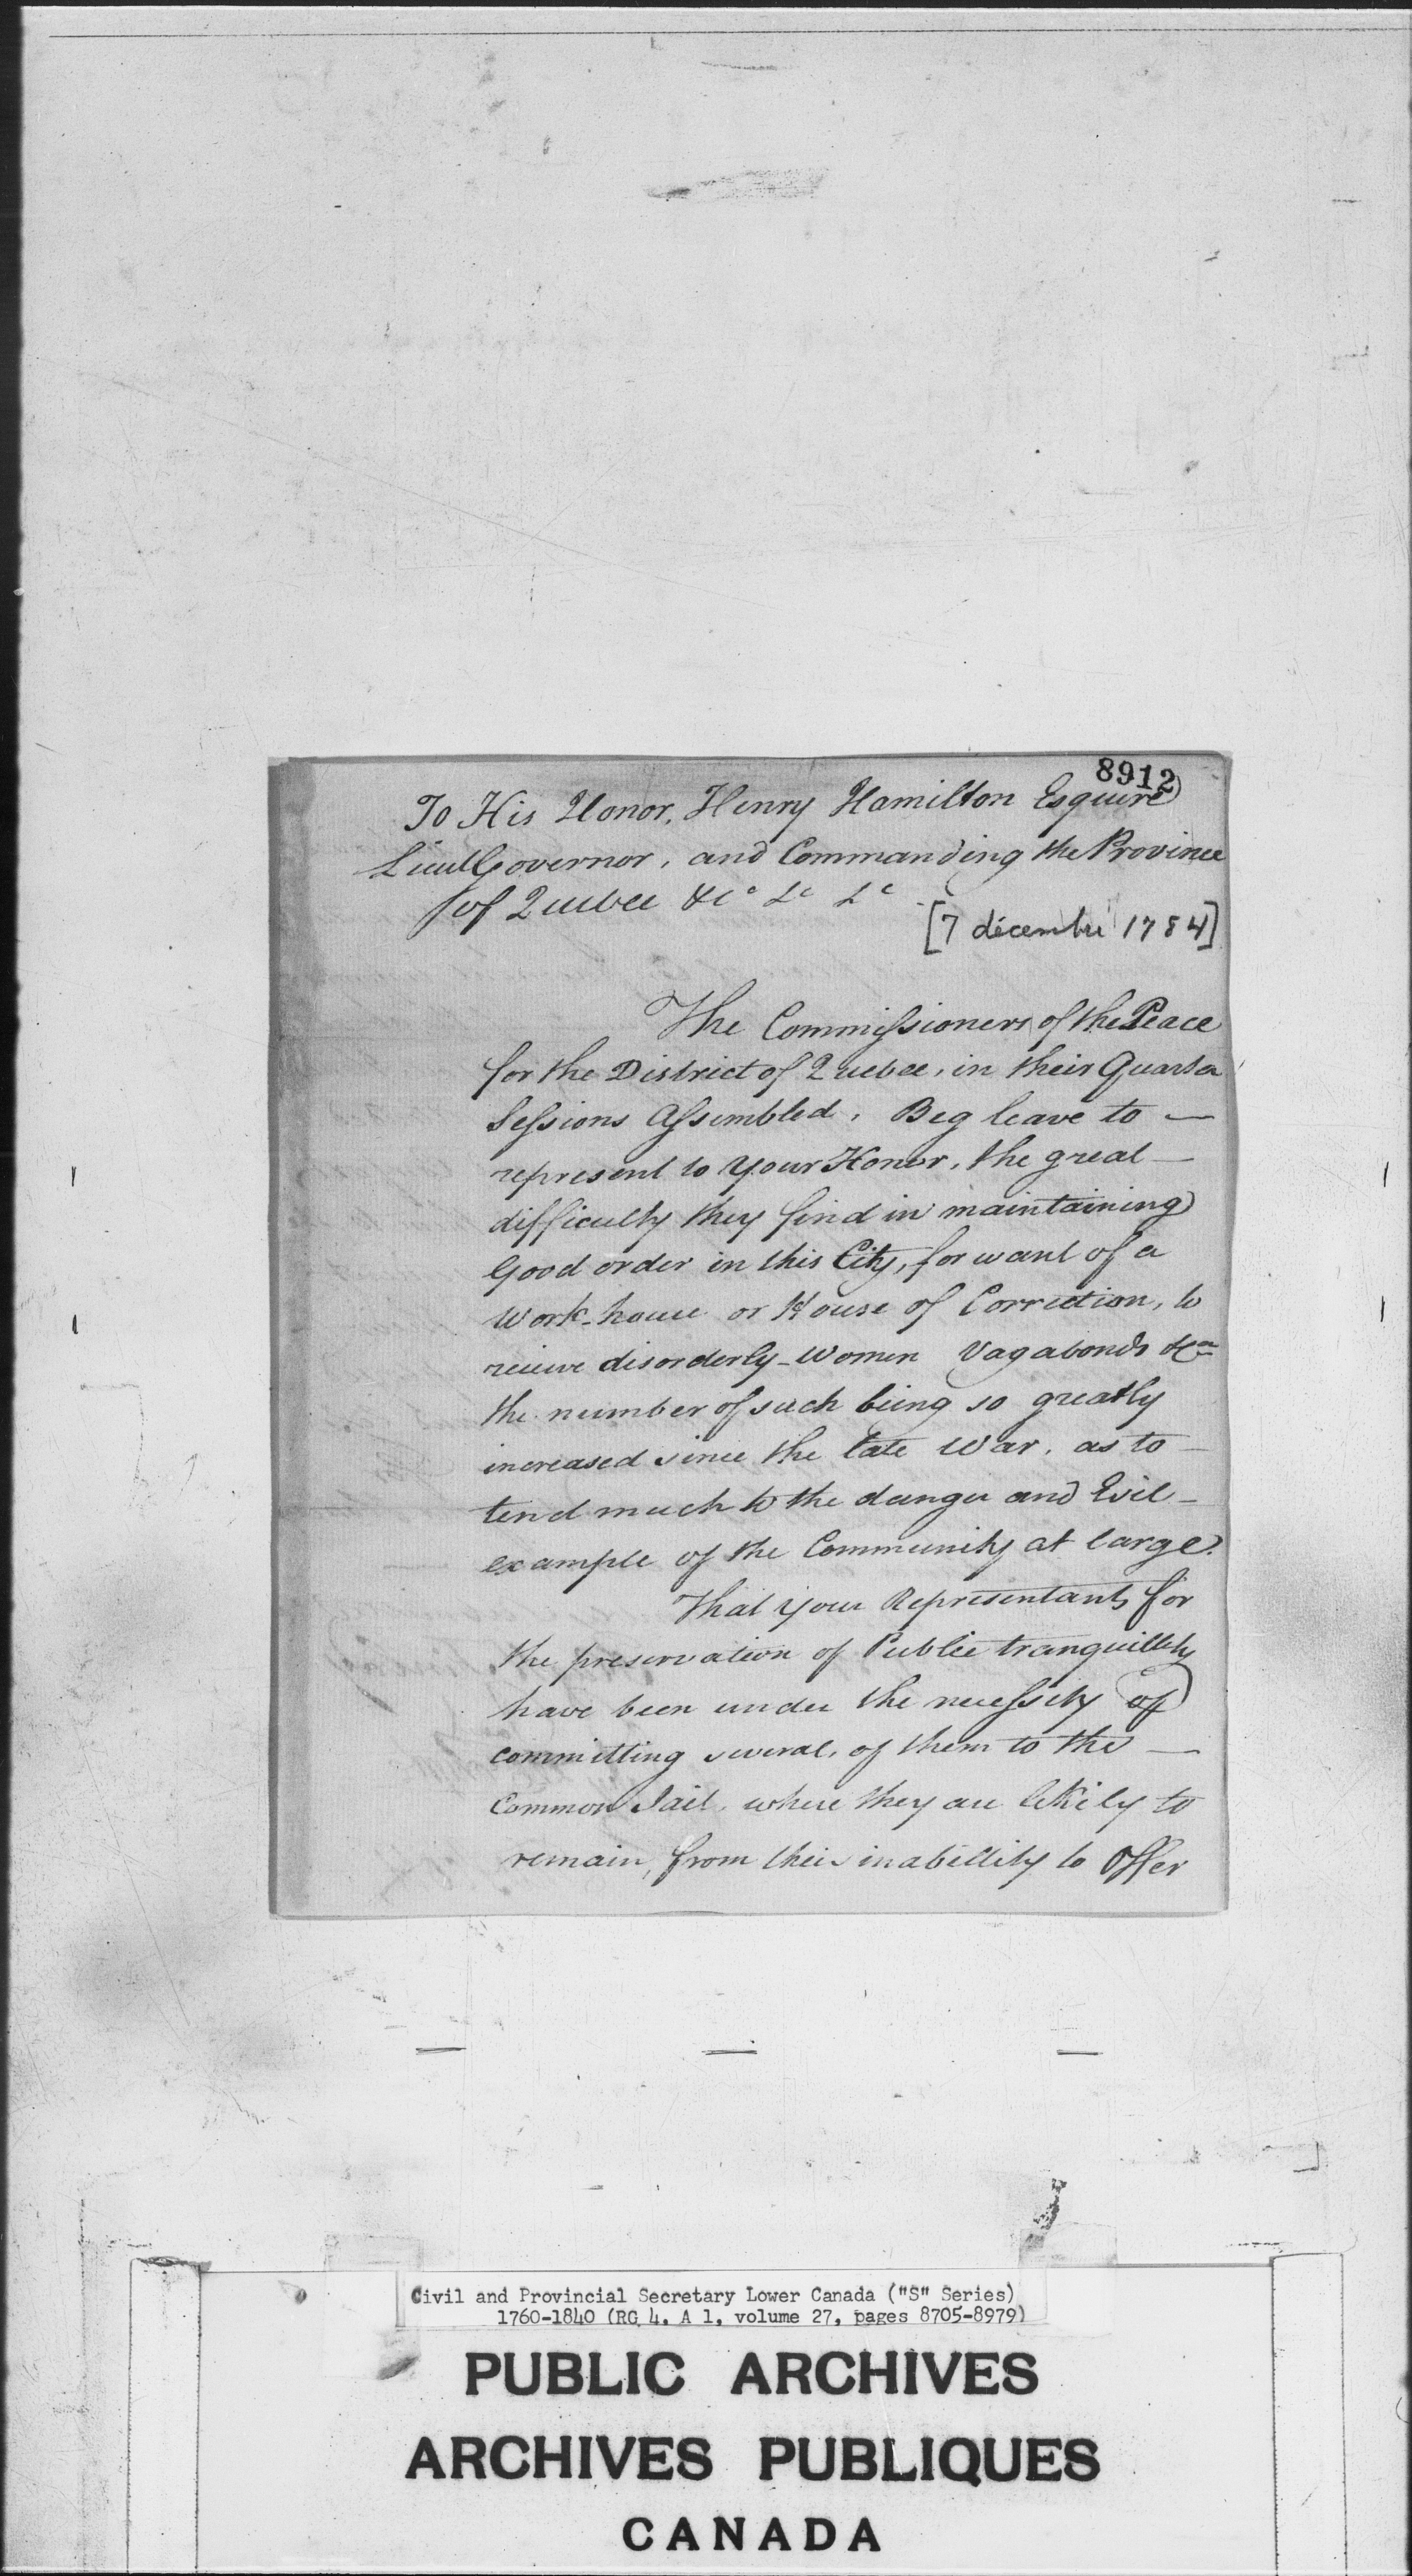 8912
To His Honor, Henry Hamilton Esquire
Lieut Governor, and Commanding the Province
of Quebec &cᵃ &ᶜ &ᶜ
[7 décembre 1784]
The Commissioners of the Peace
for the District of Quebec, in their Quarter
Sessions Assembled, Beg leave to —
represent to Your Honor, the great —
difficulty they find in maintaining
Good order in this City, for want of a
Work-house or House of Correction, to
recieve disorderly-Women Vagabonds &cᵃ
the number of such being so greatly
increased since the late War, as to —
tend much to the danger and Evil —
example of the Community at large.
That your Representants for
the preservation of Public tranquillity
have been under the necessity of
committing several, of them to the —
Common Jail, where they are likely to
remain, from their inabillity to Offer
Civil and Provincial Secretary Lower Canada ("S" Series)
1760-1840 (RG 4, A 1, volume 27, pages 8705-8979)
PUBLIC ARCHIVES
ARCHIVES PUBLIQUES
CANADA